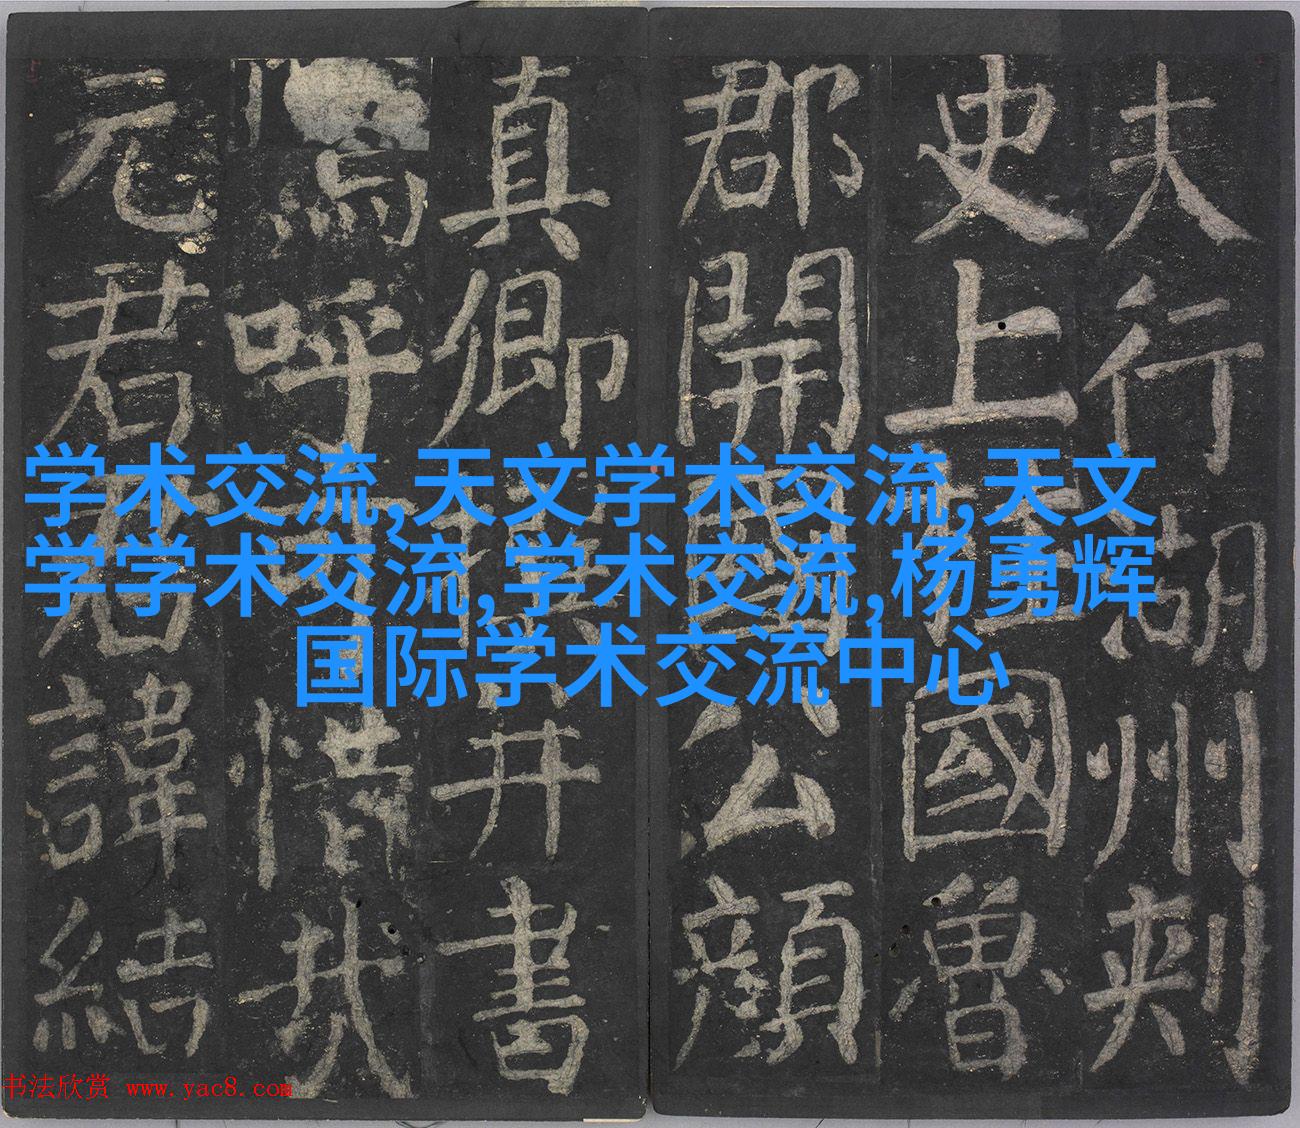 夫行湖州刺
史上柱國魯
郡開國公顏
真卿撰并書
嗚呼可惜哉
元君君諱結
学术交流,天文学术交流,天文
学学术交流,学术交流,杨勇辉
国际学术交流中心
书法欣赏 www.yac8.com